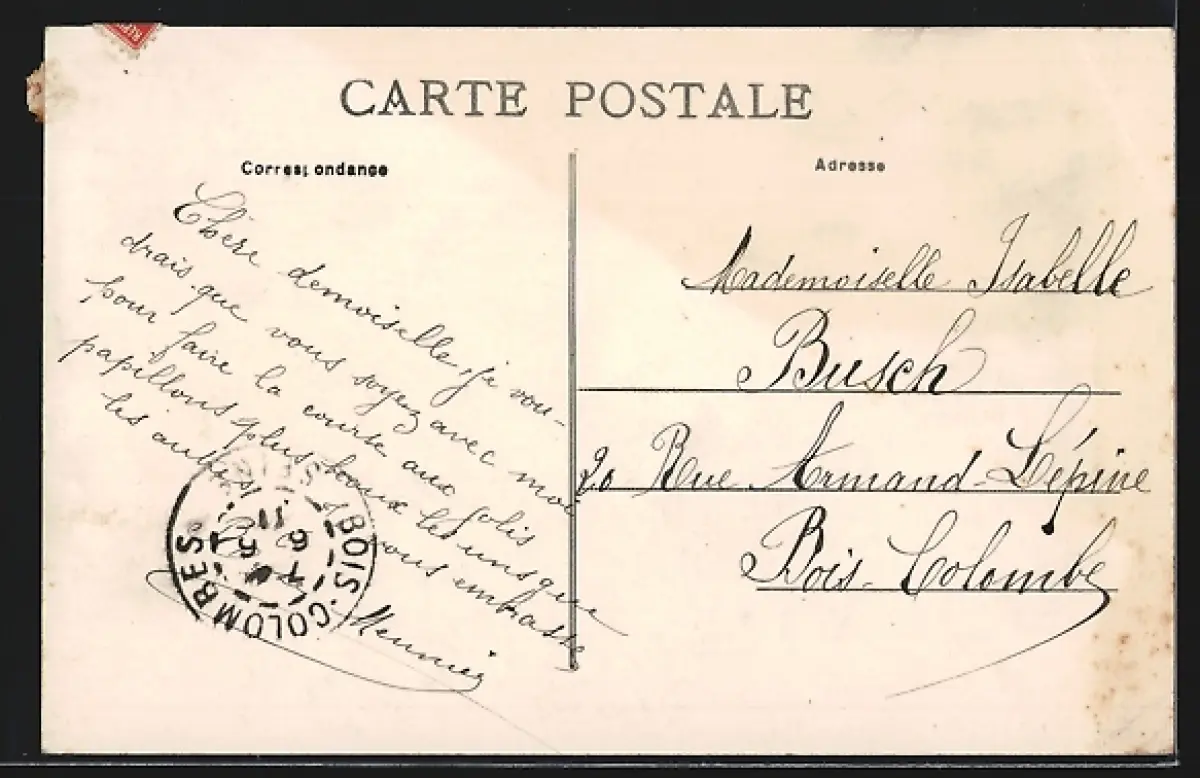 CARTE POSTALE
Correspondance
Adresse
Chère demoiselle, je vou-
drais que vous soyez avec moi
pour faire la course aux jolis
papillons plus beaux les uns que
les autres je vous embrasse
Meunier
Mademoiselle Isabelle
Busch
20 Rue Armand-Lépine
Bois-Colombe
BOIS-COLOMBES.